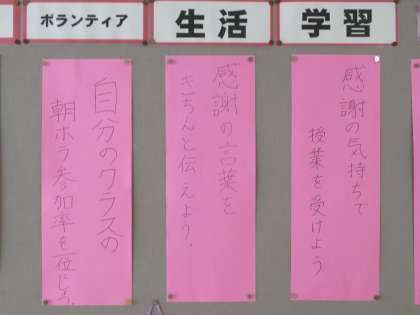 ボランティア
生活
学習
自分のクラスの
朝ボラ参加率を一位にしよう。
感謝の言葉を
きちんと伝えよう。
感謝の気持ちで
授業を受けよう